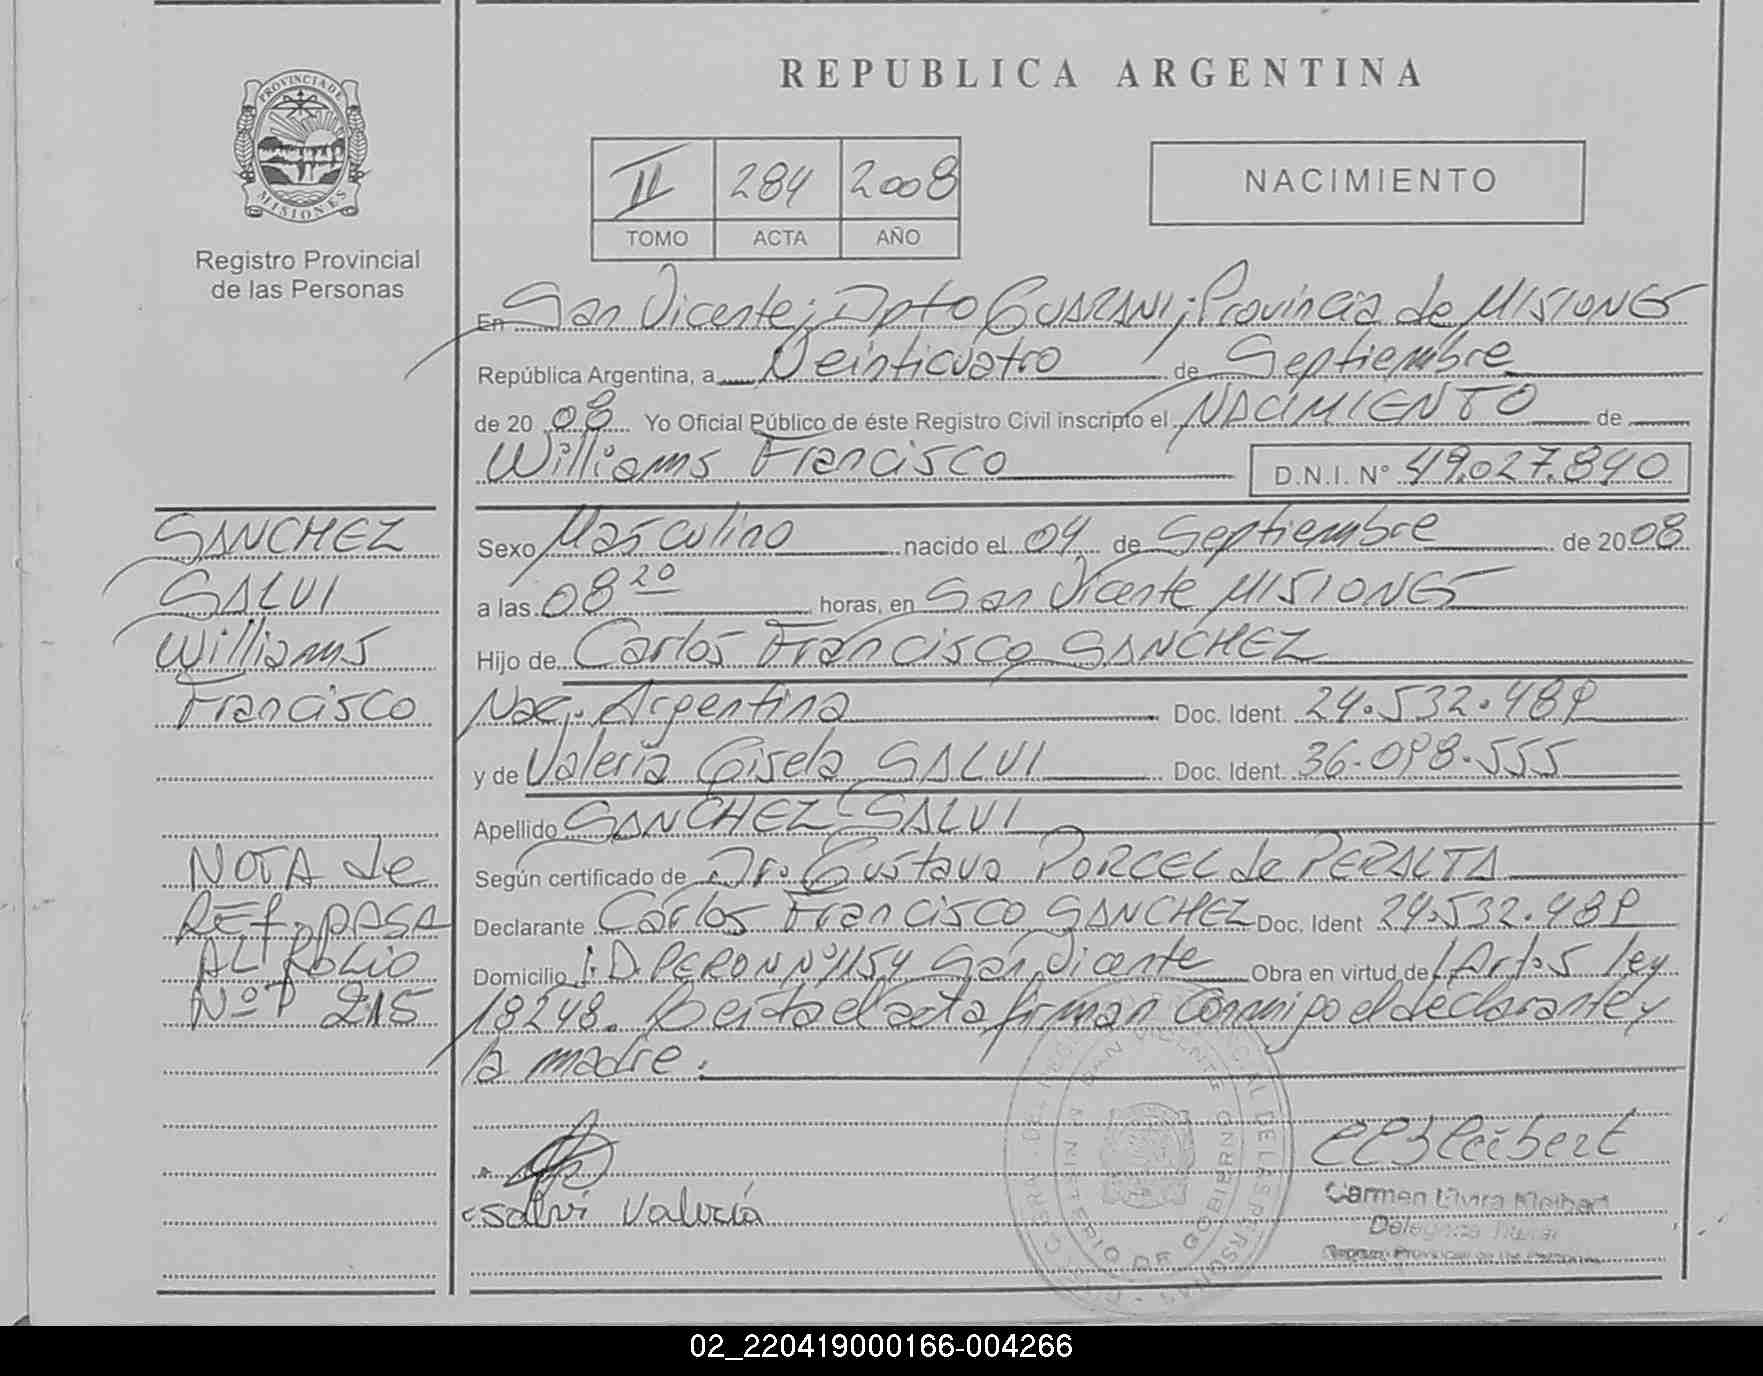 PROVINCIA DE
MISIONES
Registro Provincial
de las Personas
REPUBLICA ARGENTINA
II 284 2008
TOMO ACTA AÑO
NACIMIENTO
En San Vicente; Dpto GUARANI; Provincia de MISIONES
República Argentina, a Veinticuatro de Septiembre
de 20 08 Yo Oficial Público de éste Registro Civil inscripto el NACIMIENTO de
Williams Francisco D.N.I. N° 49.027.840
SANCHEZ
SALVI
Williams
Francisco
Sexo Masculino nacido el 04 de Septiembre de 2008
a las 08 20 horas, en San Vicente MISIONES
Hijo de Carlos Francisco SANCHEZ
Nac. Argentina Doc. Ident. 24.532.489
y de Valeria Gisela SALVI Doc. Ident. 36.098.555
Apellido SANCHEZ SALVI
Según certificado de Dr. Gustavo PORCEL de PERALTA
Declarante Carlos Francisco SANCHEZ Doc. Ident 24.532.489
Domicilio J.D. PERON N° 1154 San Vicente Obra en virtud de Art. 5 ley
18248. Leída el acta firman conmigo el declarante y
la madre.
NOTA de
REF. PASA
AL FOLIO
Nº 215
Salvi Valeria
Carmen Elvira Kleibert
SAN VICENTE
MINISTERIO DE GOBIERNO
02_220419000166-004266